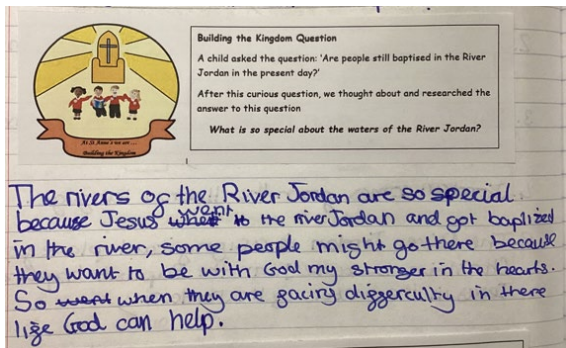 At St Anne's we are ...
Building the Kingdom
Building the Kingdom Question
A child asked the question: 'Are people still baptised in the River
Jordan in the present day?'
After this curious question, we thought about and researched the
answer to this question
What is so special about the waters of the River Jordan?
The rivers og the River Jordan are so special
because Jesus went to the river Jordan and got baptized
in the river, some people might go there because
they want to be with God my stronger in the hearts.
So when they are gacing diggerculty in there
lige God can help.